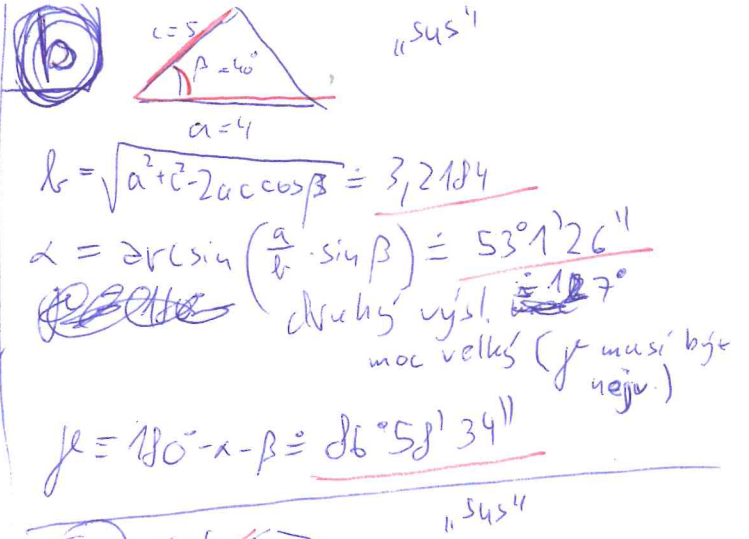 b
c=5
„sus"
β=40°
a=4
b = √(a²+c²-2ac cosβ) ≐ 3,2184
α = arcsin (a/b · sin β) ≐ 53°1'26"
druhý výsl. ≐ 127°
moc velký (γ musí být
nejv.)
γ = 180°-α-β ≐ 86°58'34"
„sus"